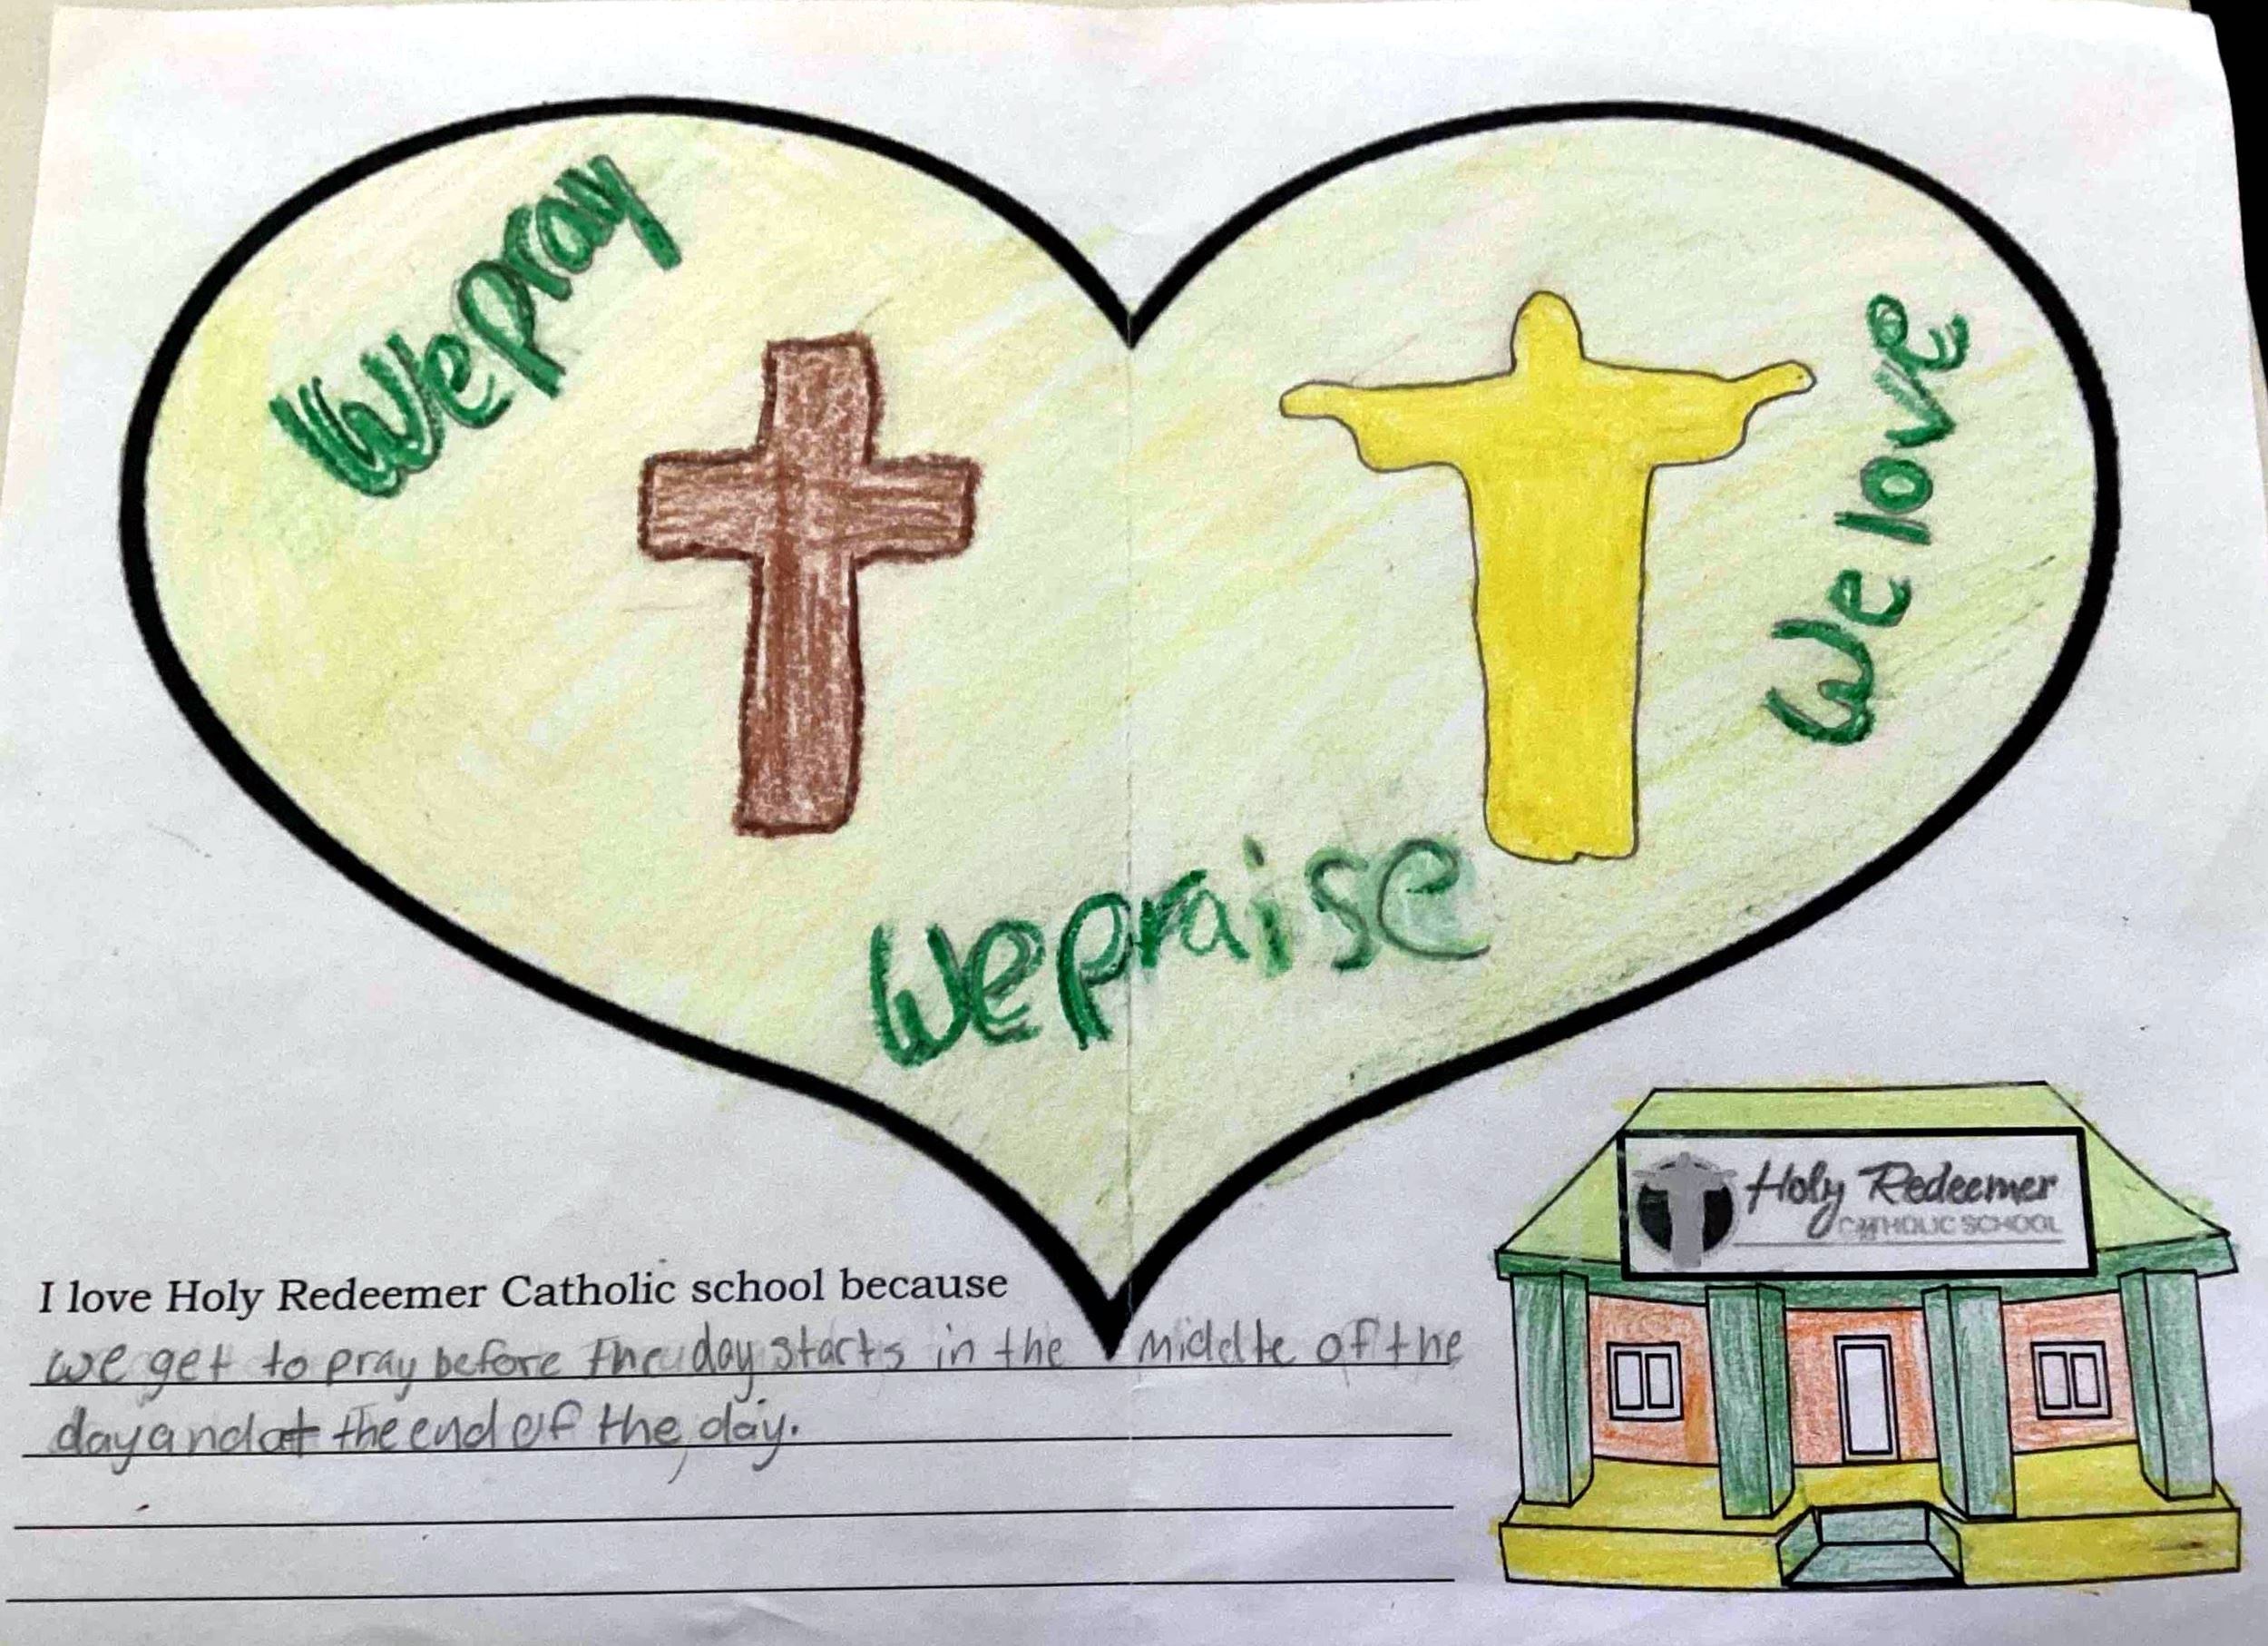 We pray
We love
We praise
Holy Redeemer
CATHOLIC SCHOOL
I love Holy Redeemer Catholic school because
we get to pray before the day starts in the middle of the
day and at the end of the day.